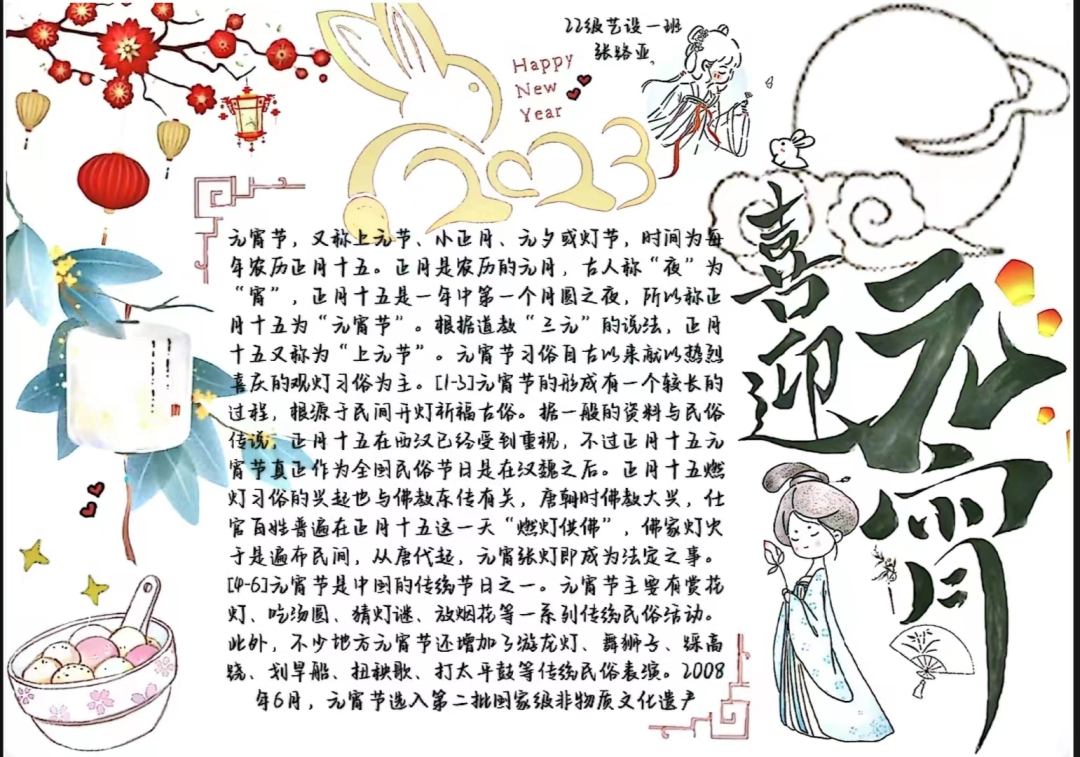 22级艺设一班
张路亚
Happy
New
Year
2023
喜迎
元宵
元宵节，又称上元节、小正月、元夕或灯节，时间为每
年农历正月十五。正月是农历的元月，古人称“夜”为
“宵”，正月十五是一年中第一个月圆之夜，所以称正
月十五为“元宵节”。根据道教“三元”的说法，正月
十五又称为“上元节”。元宵节习俗自古以来就以热烈
喜庆的观灯习俗为主。[1-3]元宵节的形成有一个较长的
过程，根源于民间开灯祈福古俗。据一般的资料与民俗
传说，正月十五在西汉已经受到重视，不过正月十五元
宵节真正作为全国民俗节日是在汉魏之后。正月十五燃
灯习俗的兴起也与佛教东传有关，唐朝时佛教大兴，仕
官百姓普遍在正月十五这一天“燃灯供佛”，佛家灯火
于是遍布民间，从唐代起，元宵张灯即成为法定之事。
[4-6]元宵节是中国的传统节日之一。元宵节主要有赏花
灯、吃汤圆、猜灯谜、放烟花等一系列传统民俗活动。
此外，不少地方元宵节还增加了游龙灯、舞狮子、踩高
跷、划旱船、扭秧歌、打太平鼓等传统民俗表演。2008
年6月，元宵节选入第二批国家级非物质文化遗产